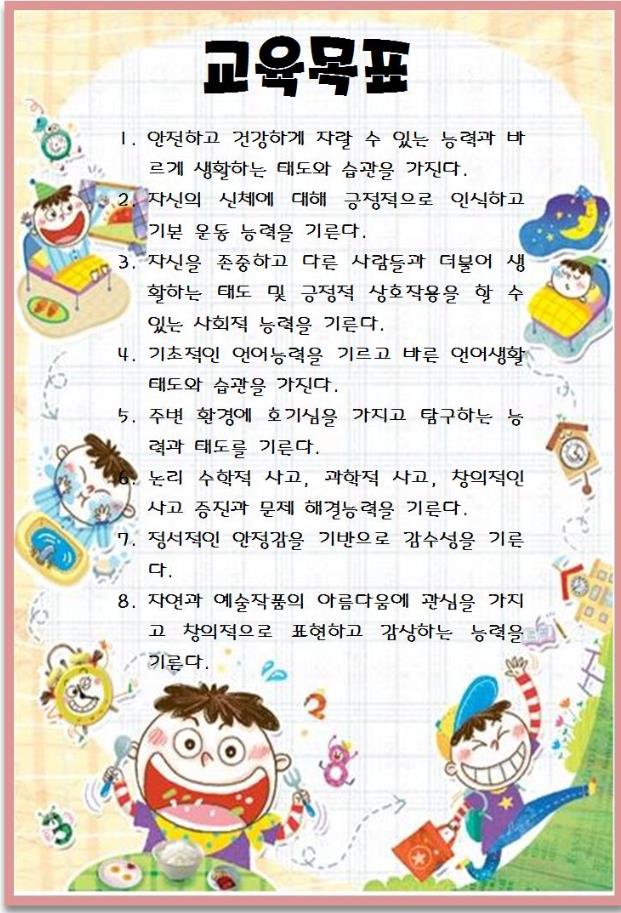 교육목표
1. 안전하고 건강하게 자랄 수 있는 능력과 바
르게 생활하는 태도와 습관을 가진다.
2. 자신의 신체에 대해 긍정적으로 인식하고
기본 운동 능력을 기른다.
3. 자신을 존중하고 다른 사람들과 더불어 생
활하는 태도 및 긍정적 상호작용을 할 수
있는 사회적 능력을 기른다.
4. 기초적인 언어능력을 기르고 바른 언어생활
태도와 습관을 가진다.
5. 주변 환경에 호기심을 가지고 탐구하는 능
력과 태도를 기른다.
6. 논리 수학적 사고, 과학적 사고, 창의적인
사고 증진과 문제 해결능력을 기른다.
7. 정서적인 안정감을 기반으로 감수성을 기른
다.
8. 자연과 예술작품의 아름다움에 관심을 가지
고 창의적으로 표현하고 감상하는 능력을
기른다.